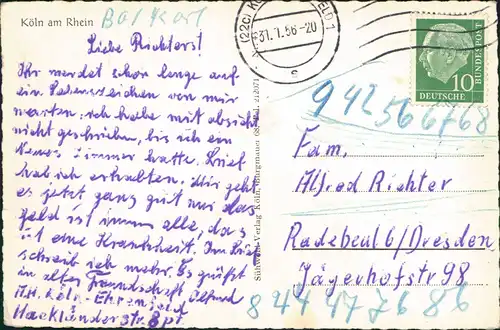 Köln am Rhein
Bal Karl
Liebe Richters!
Ihr werdet schon lange auf
ein Lebenszeichen von mir
warten; ich habe mit absicht
nicht geschrieben, bis ich ein
Neues Zimmer hatte. Brief
hab ich erhalten. Mir geht
es jetzt ganz gut nur das
geld ist immer alle, das
ist eine Krankheit. Im Brief
schreib ich mehr. Es grüßt
in alter Freundschaft Alfred
Köln-Ehrenfeld
Hackländerstr. 8 pt
31.1.56-20
10
DEUTSCHE
BUNDESPOST
942566768
Fam.
Alfred Richter
Radebeul 6/Dresden
Jägerhofstr 98
844177686
Verlag Köln,